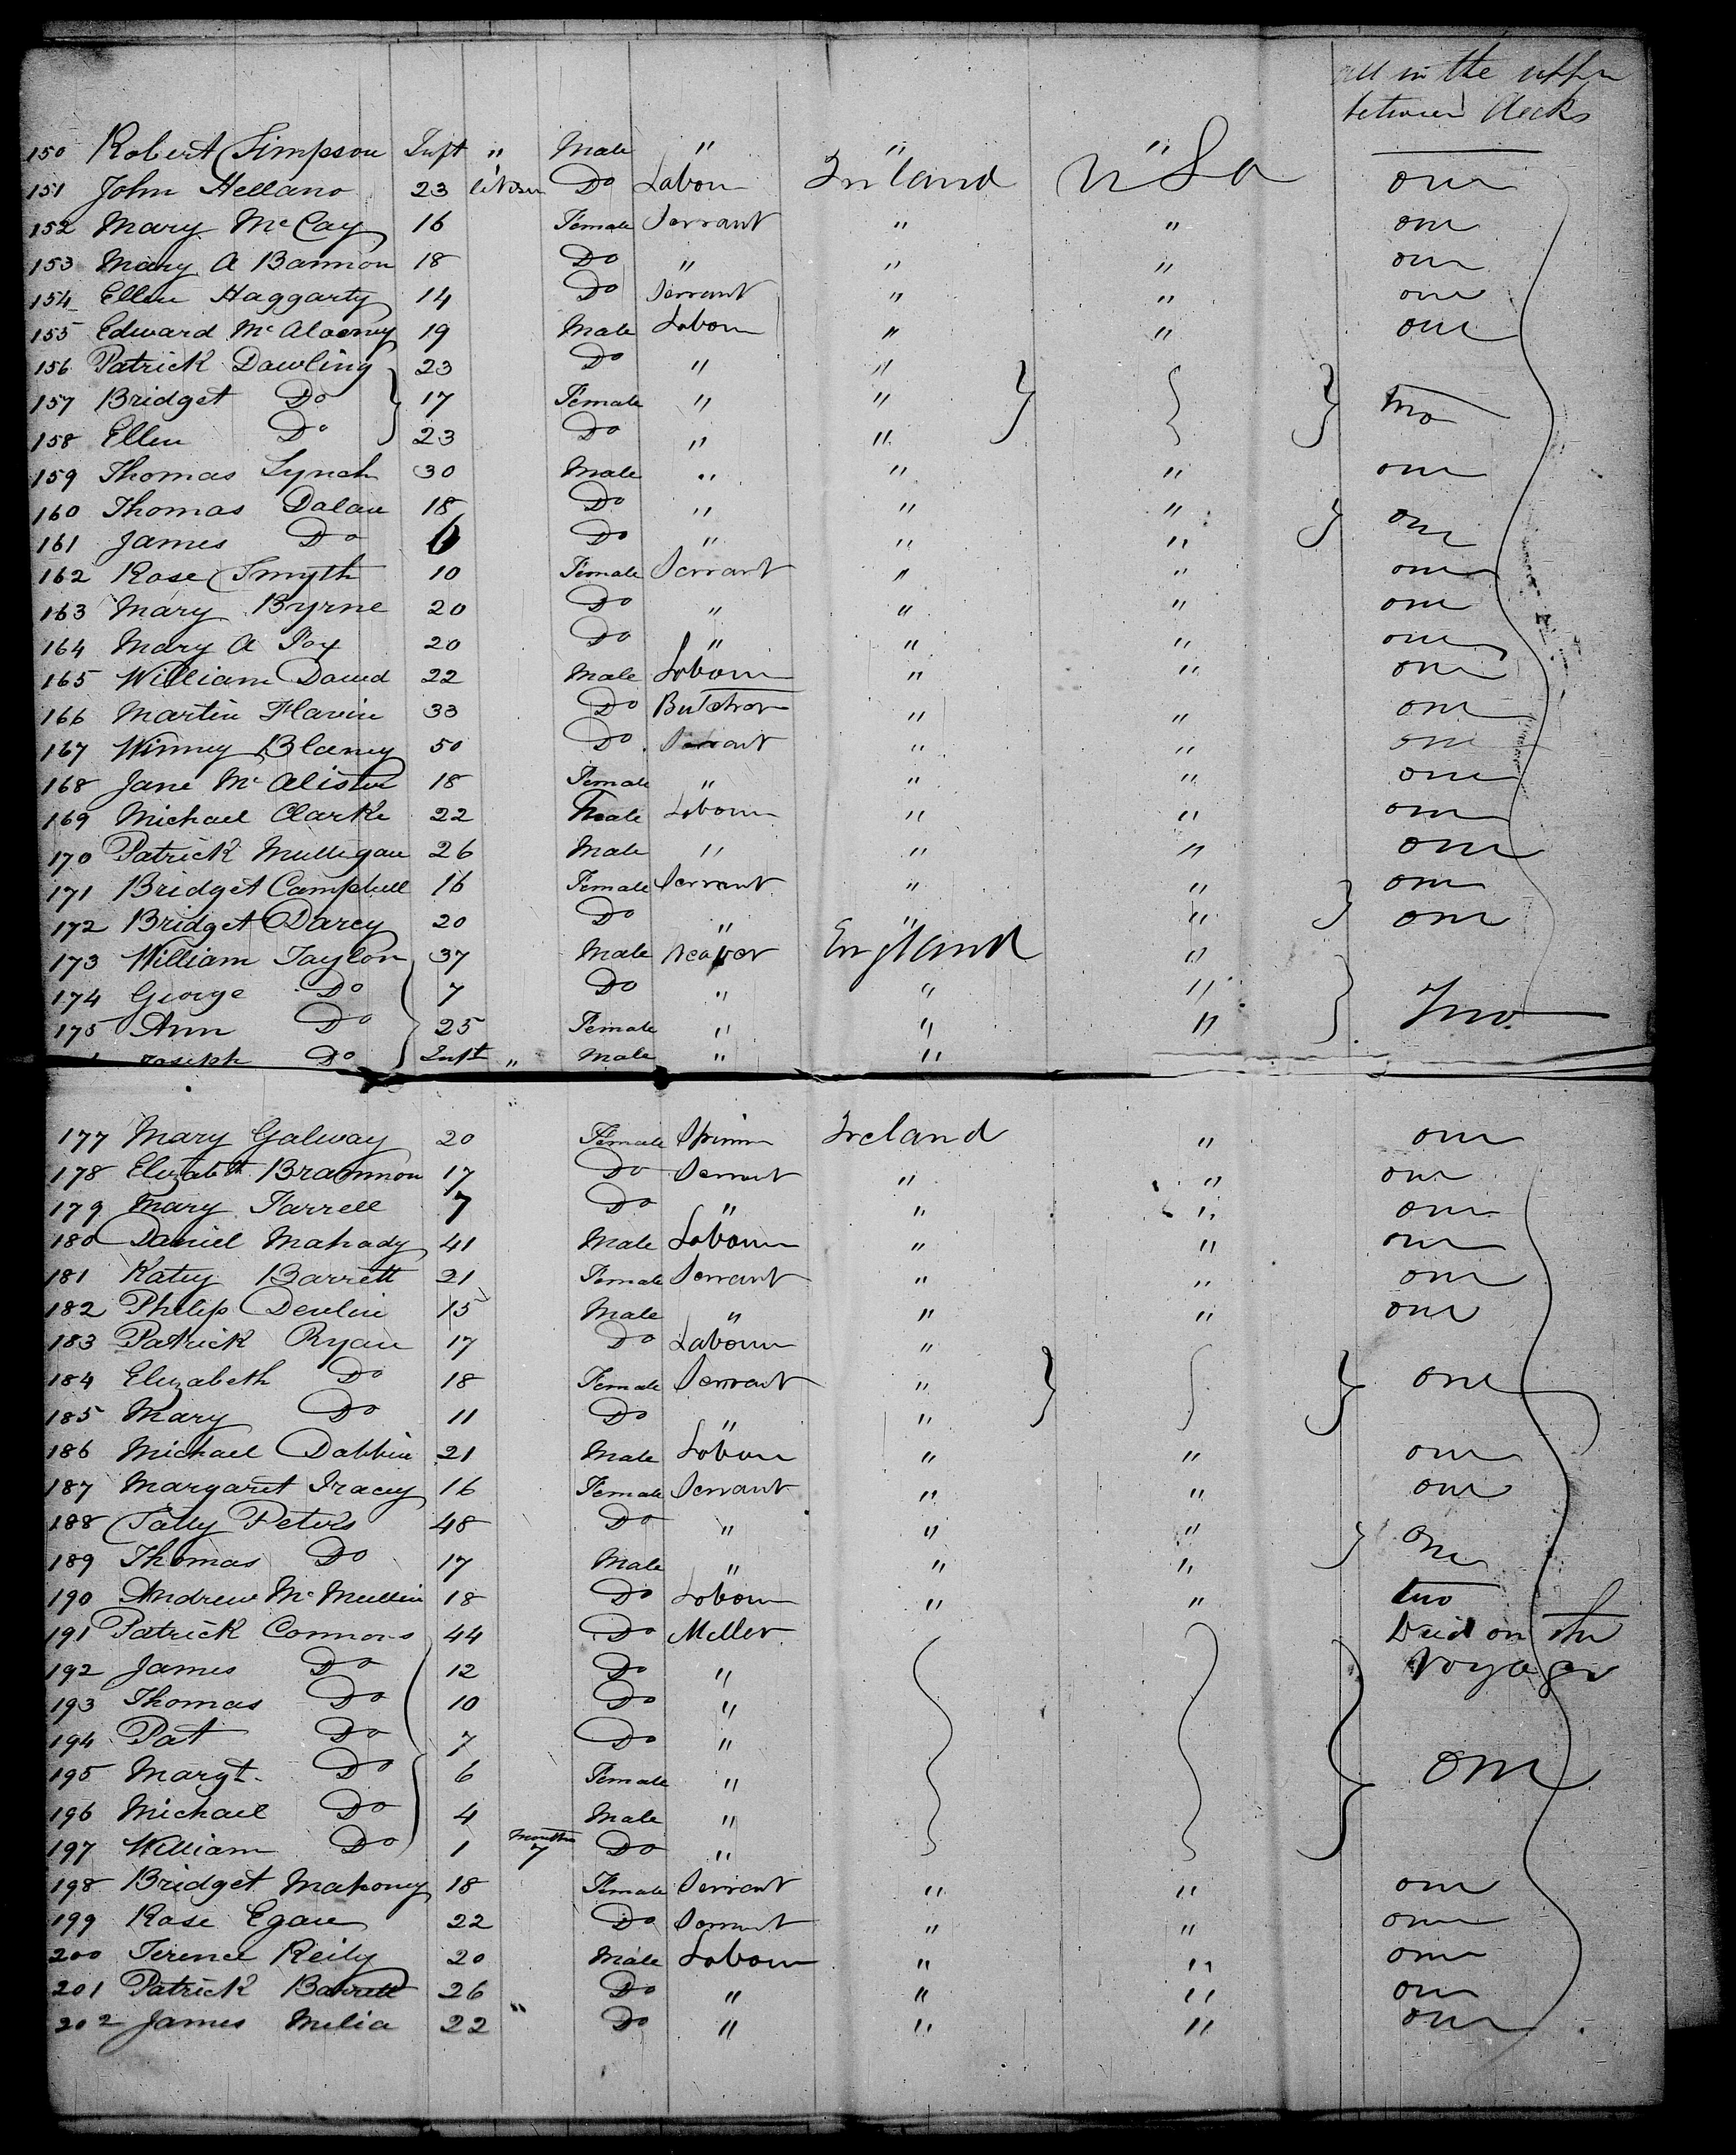 all in the upper
between decks
150 Robert Simpson Inft " Male " " "
151 John Hellano 23 Do Labour Ireland U S a one
152 Mary McCay 16 Female Servant " " one
153 Mary A Bannon 18 Do " " " one
154 Ellen Haggarty 14 Do Servant " " one
155 Edward McAloeney 19 Male Labour " " one
156 Patrick Dowling 23 Do " "
157 Bridget Do 17 Female " " two
158 Ellen Do 23 Do " "
159 Thomas Lynch 30 Male " " " one
160 Thomas Dolan 18 Do " " " one
161 James Do 6 Do " " "
162 Rose Smyth 10 Female Servant " " one
163 Mary Byrne 20 Do " " " one
164 Mary A Foy 20 Do " " " one
165 William David 22 Male Labour " " one
166 Martin Flavin 33 Do Butcher " " one
167 Winney Blaney 50 Do Servant " " one
168 Jane McAlister 18 Female " " " one
169 Michael Clarke 22 Male Labour " " one
170 Patrick Mulligan 26 Male " " " one
171 Bridget Campbell 16 Female Servant " " one
172 Bridget Darcy 20 Do " " " one
173 William Taylor 37 Male Weaver England "
174 George Do 7 Do " " " Two
175 Ann Do 25 Female " " "
Joseph Do Inft " Male " "
177 Mary Galway 20 Female Ireland " one
178 Elizabth Brannon 17 Do Servant " " one
179 Mary Farrell 7 Do " " " one
180 Daniel Mahady 41 Male Labour " " one
181 Katey Barrett 21 Female Servant " " one
182 Philip Devlin 15 Male " " " one
183 Patrick Ryan 17 Do Labour "
184 Elizabeth Do 18 Female Servant " one
185 Mary Do 11 Do " "
186 Michael Dobbin 21 Male Labour " " one
187 Margaret Tracey 16 Female Servant " " one
188 Sally Peters 48 Do " " " one
189 Thomas Do 17 Male " " "
190 Andrew McMullin 18 Do Labour " " two
191 Patrick Connors 44 Do Miller Died on the
192 James Do 12 Do " Voyage
193 Thomas Do 10 Do "
194 Pat Do 7 Do "
195 Margt. Do 6 Female " one
196 Michael Do 4 Male "
197 William Do 1 months 7 Do "
198 Bridget Mahoney 18 Female Servant " " one
199 Rose Egan 22 Do Servant " " one
200 Terence Reily 20 Male Labour " " one
201 Patrick 26 Do " " " one
202 James Melia 22 " Do " " " one